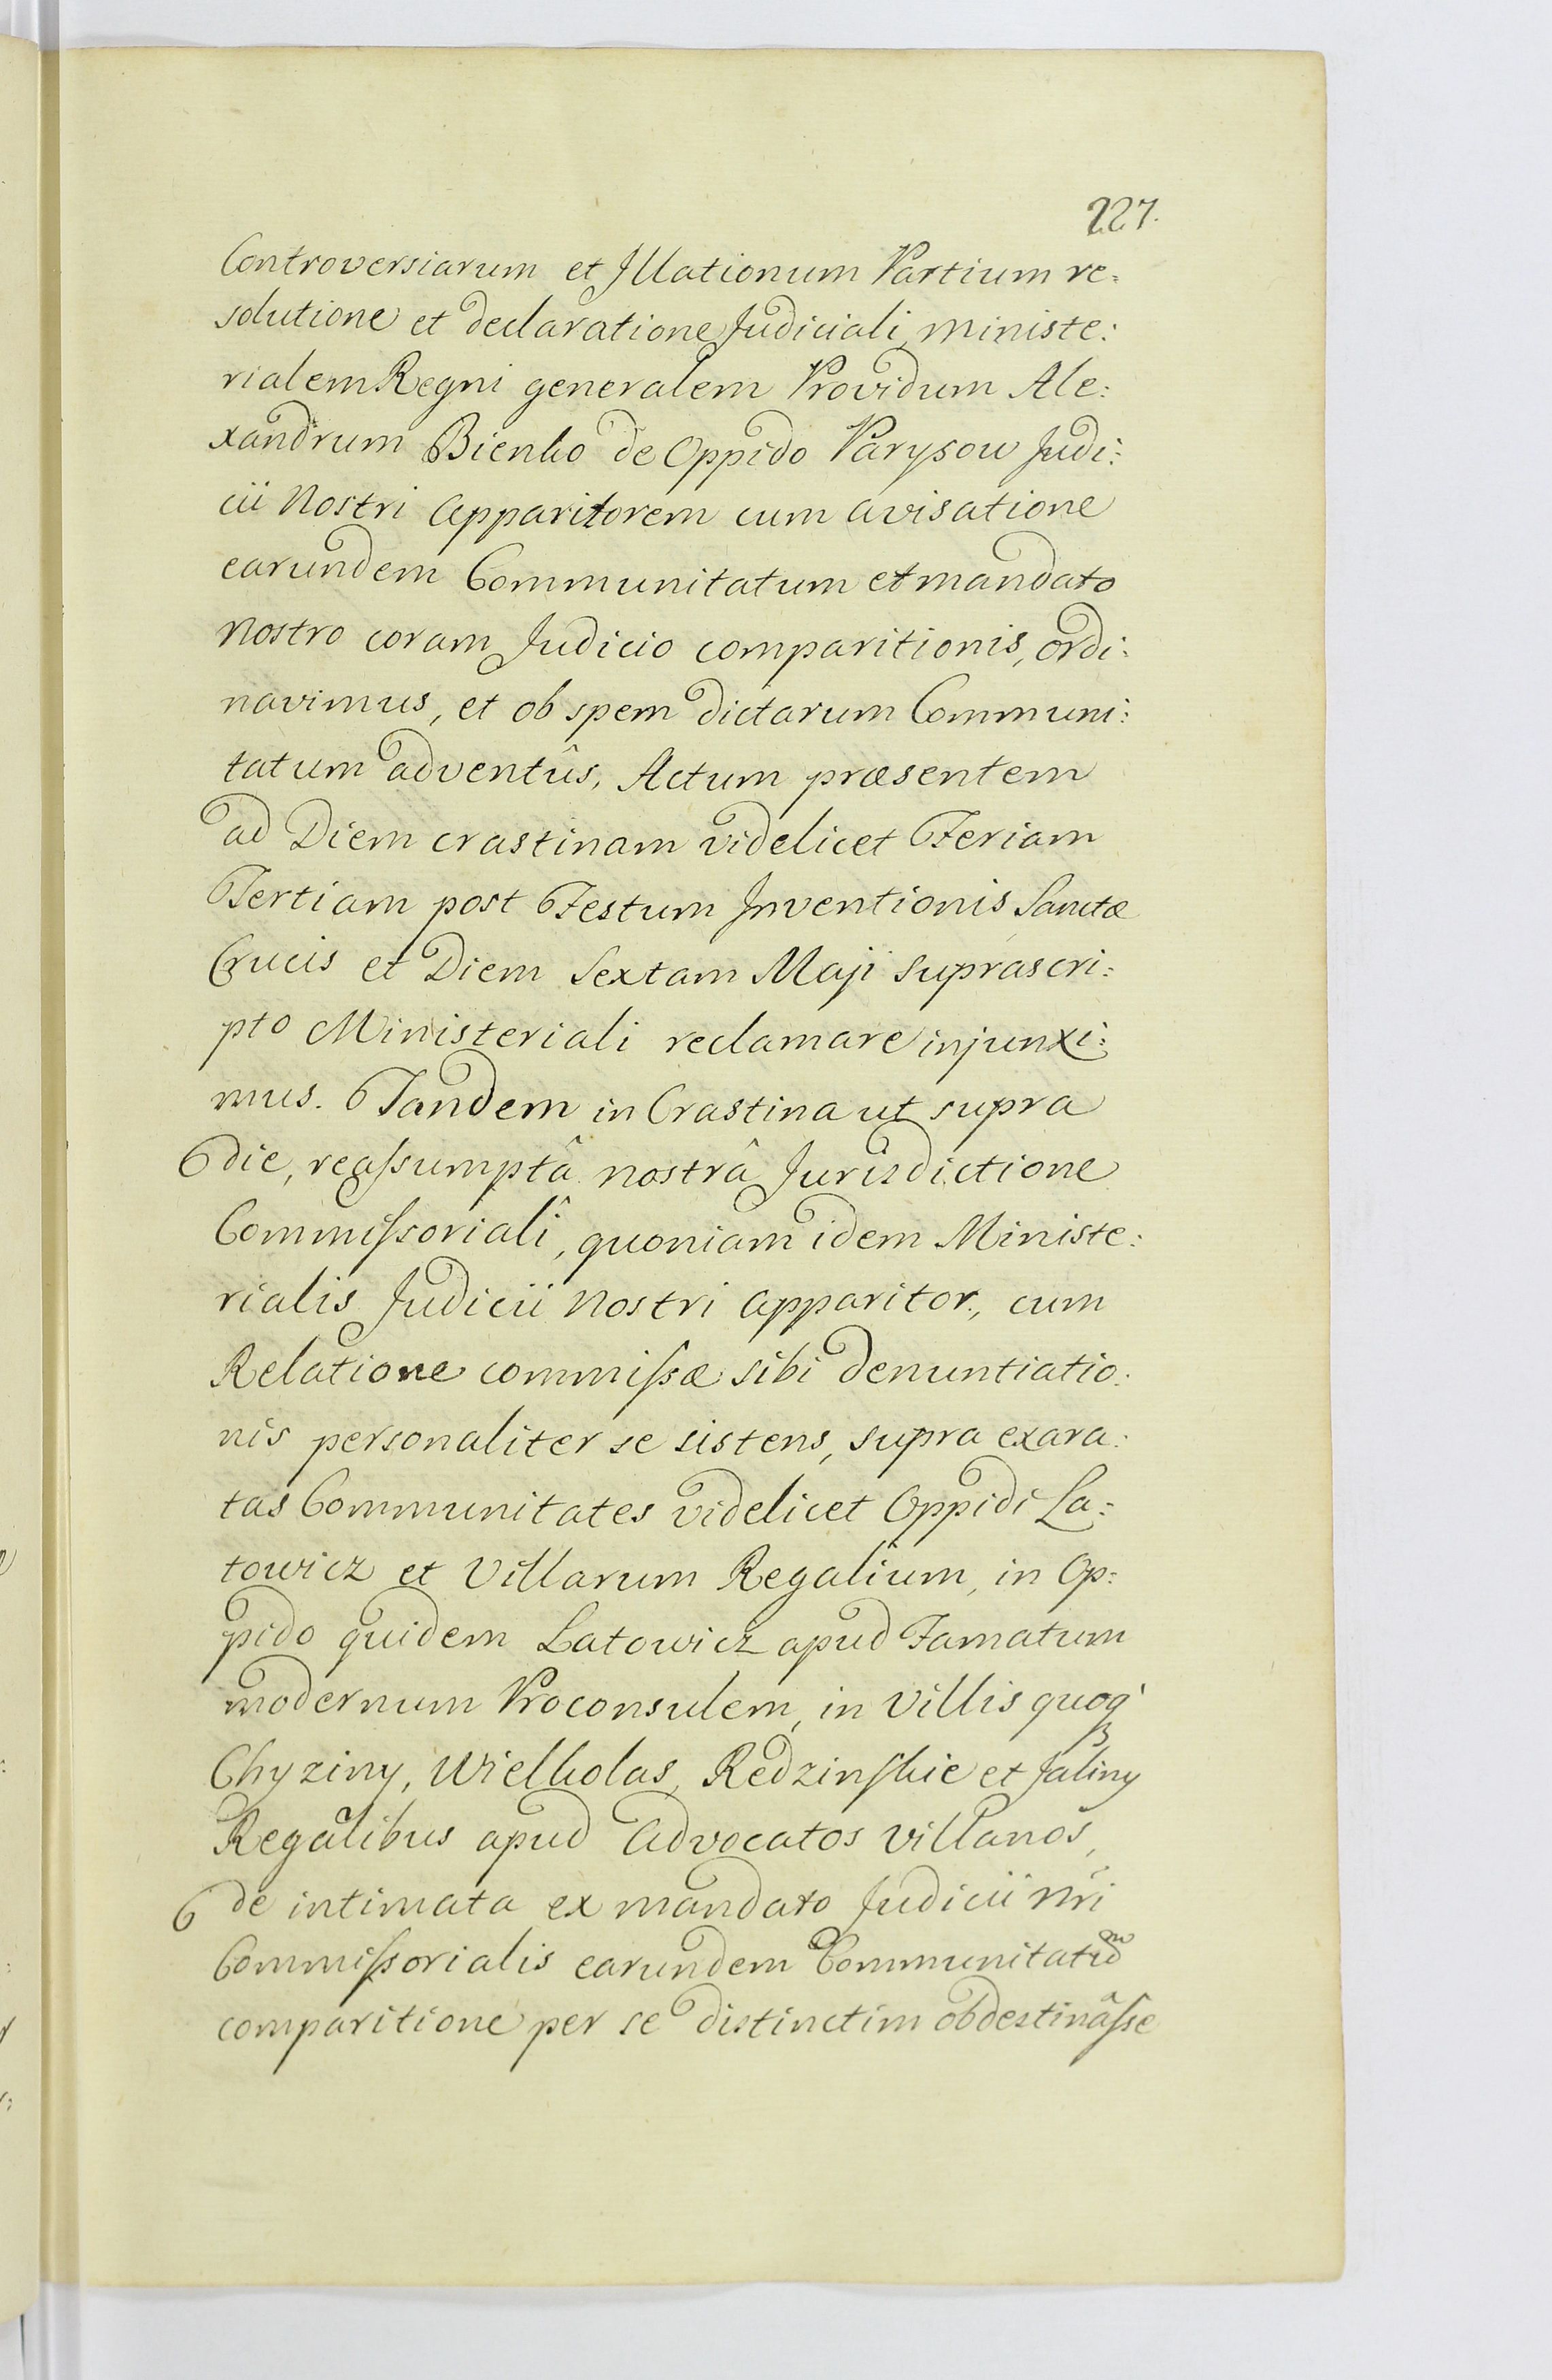 227.
Controversiarum et Illationum Partium re:
solutione et declaratione Judiciali, Ministe:
rialem Regni generalem Providum Ale:
xandrum Bienko de Oppido Parysow Judi:
cii Nostri Apparitorem cum avisatione
earundem Communitatum et mandato
Nostro coram Judicio comparitionis, ordi:
navimus, et ob spem dictarum Communi:
tatum adventûs, Actum præsentem
ad Diem crastinam videlicet Feriam
Tertiam post Festum Inventionis Sanctæ
Crucis et Diem Sextam Maji suprascri:
pto Ministeriali reclamare injunxi:
mus. Tandem in Crastina ut supra
die, reaſsumptâ nostrâ Jurisdictione
Commiſsorialî, quoniam idem Ministe:
rialis Judicii Nostri Apparitor, cum
Relatione commiſsæ sibi denuntiatio:
nis personaliter se sistens, supra exara:
tas Communitates videlicet Oppidi La:
towicz et Villarum Regalium, in Op:
pido quidem Latowicz apud Famatum
modernum Proconsulem, in Villis quoq̃
Chyziny, Wielkolas, Redzinſkie et Jaliny
Regalibus apud Advocatos villanos,
de intimata ex mandato Judicii Nr̃i
Commiſsorialis earundem Communitatu͠m
comparitione per se distinctim obdestinâſse